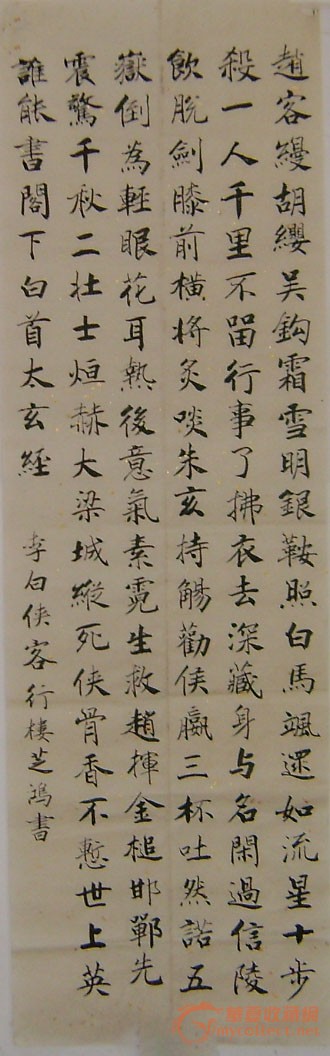 趙客縵胡纓吳鈎霜雪明銀鞍照白馬颯遝如流星十步
殺一人千里不留行事了拂衣去深藏身与名閑過信陵
飲脫劍膝前橫將炙啖朱亥持觴勸侯嬴三杯吐然諾五
嶽倒為輕眼花耳熱後意氣素霓生救趙揮金槌邯鄲先
震驚千秋二壯士烜赫大梁城縱死俠骨香不慙世上英
誰能書閣下白首太玄經
李白俠客行樓芝鴻書